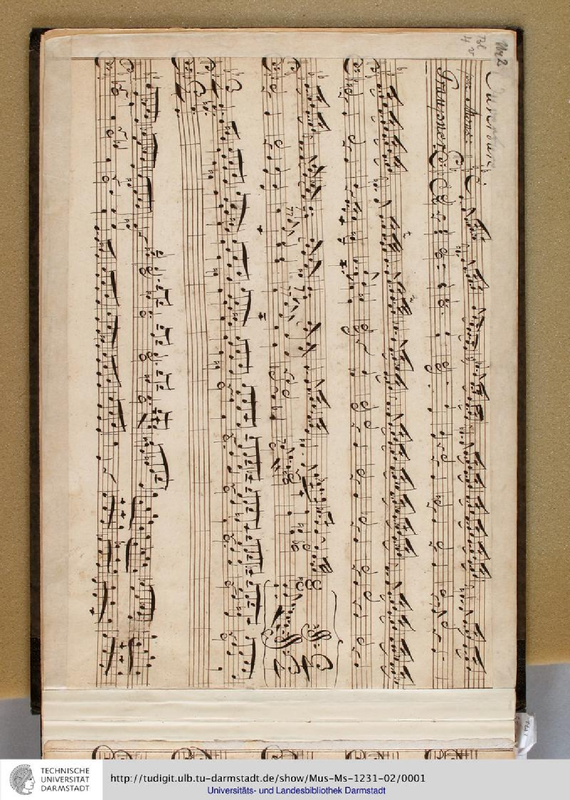 No 2
Ouverture
transponert
TECHNISCHE
UNIVERSITÄT
DARMSTADT
http://tudigit.ulb.tu-darmstadt.de/show/Mus-Ms-1231-02/0001
Universitäts- und Landesbibliothek Darmstadt